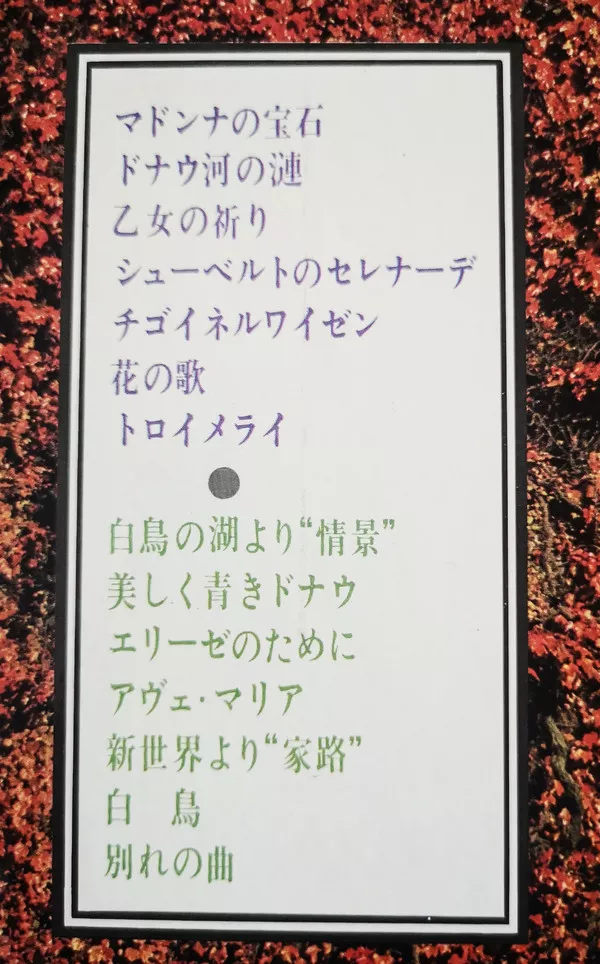 マドンナの宝石
ドナウ河の漣
乙女の祈り
シューベルトのセレナーデ
チゴイネルワイゼン
花の歌
トロイメライ
●
白鳥の湖より“情景”
美しく青きドナウ
エリーゼのために
アヴェ・マリア
新世界より“家路”
白　鳥
別れの曲